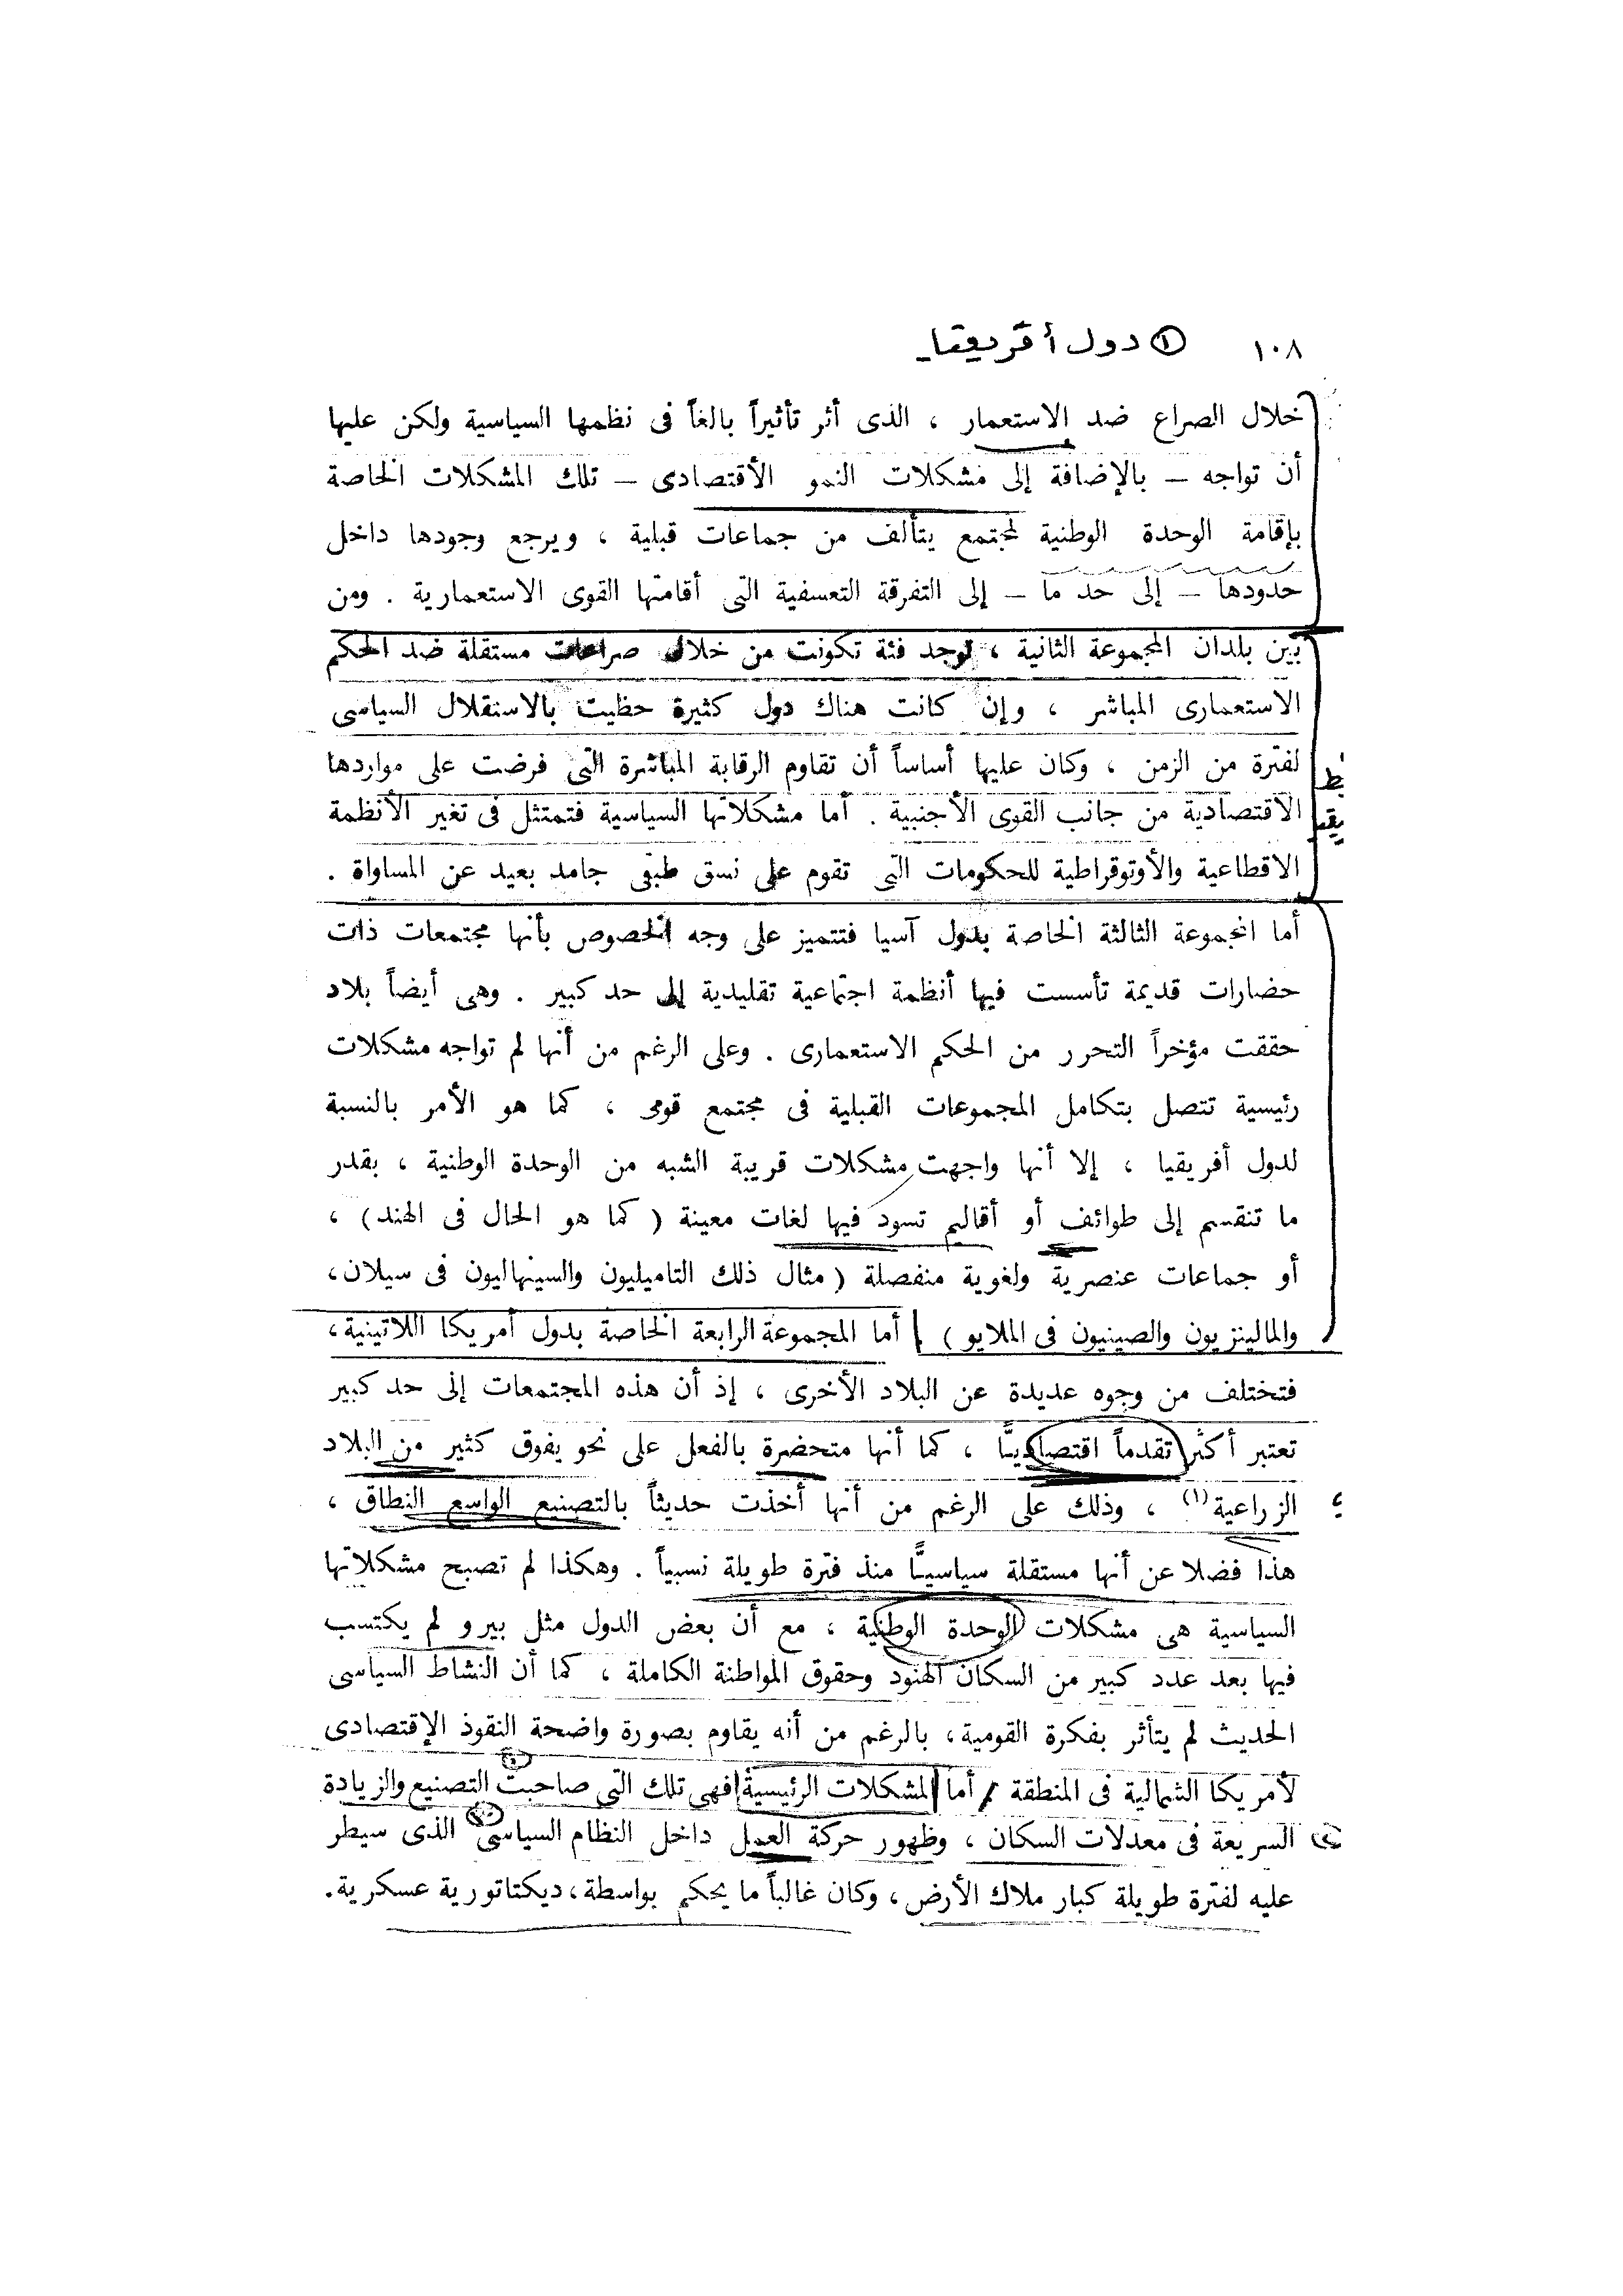 ١٠٨ ① دول أفريقيا
خلال الصراع ضد الاستعمار ، الذى أثر تأثيراً بالغاً فى نظمها السياسية ولكن عليها
أن تواجه – بالإضافة إلى مشكلات النمو الأقتصادى – تلك المشكلات الخاصة
بإقامة الوحدة الوطنية لمجتمع يتألف من جماعات قبلية ، ويرجع وجودها داخل
حدودها – إلى حد ما – إلى التفرقة التعسفية التى أقامتها القوى الاستعمارية . ومن
بين بلدان المجموعة الثانية ، توجد فئة تكونت من خلال صراعات مستقلة ضد الحكم
الاستعمارى المباشر ، وإن كانت هناك دول كثيرة حظيت بالاستقلال السياسى
لفترة من الزمن ، وكان عليها أساساً أن تقاوم الرقابة المباشرة التى فرضت على مواردها
الاقتصادية من جانب القوى الأجنبية . أما مشكلاتها السياسية فتمتثل فى تغير الأنظمة
الاقطاعية والأوتوقراطية للحكومات التى تقوم على نسق طبقى جامد بعيد عن المساواة .
أما المجموعة الثالثة الخاصة بدول آسيا فتتميز على وجه الخصوص بأنها مجتمعات ذات
حضارات قديمة تأسست فيها أنظمة اجتماعية تقليدية إلى حد كبير . وهى أيضاً بلاد
حققت مؤخراً التحرر من الحكم الاستعمارى . وعلى الرغم من أنها لم تواجه مشكلات
رئيسية تتصل بتكامل المجموعات القبلية فى مجتمع قومى ، كما هو الأمر بالنسبة
لدول أفريقيا ، إلا أنها واجهت مشكلات قريبة الشبه من الوحدة الوطنية ، بقدر
ما تنقسم إلى طوائف أو أقاليم تسود فيها لغات معينة ( كما هو الحال فى الهند) ،
أو جماعات عنصرية ولغوية منفصلة ( مثال ذلك التاميليون والسينهاليون فى سيلان،
والمالينزيون والصينيون فى الملايو ) أما المجموعة الرابعة الخاصة بدول أمريكا اللاتينية،
فتختلف من وجوه عديدة عن البلاد الأخرى ، إذ أن هذه المجتمعات إلى حد كبير
تعتبر أكثر تقدماً اقتصاديـًّا ، كما أنها متحضرة بالفعل على نحو يفوق كثير من البلاد
الزراعية(١) ، وذلك على الرغم من أنها أخذت حديثاً بالتصنيع الواسع النطاق ،
هذا فضلا عن أنها مستقلة سياسيـًّا منذ فترة طويلة نسبياً . وهكذا لم تصبح مشكلاتها
السياسية هى مشكلات الوحدة الوطنية ، مع أن بعض الدول مثل بيرو لم يكتسب
فيها بعد عدد كبير من السكان الهنود وحقوق المواطنة الكاملة ، كما أن النشاط السياسى
الحديث لم يتأثر بفكرة القومية، بالرغم من أنه يقاوم بصورة واضحة النفوذ الإقتصادى
لأمريكا الشمالية فى المنطقة ، أما المشكلات الرئيسية فهى تلك التى صاحبت التصنيع والزيادة
السريعة فى معدلات السكان ، وظهور حركة العمل داخل النظام السياسى الذى سيطر
عليه لفترة طويلة كبار ملاك الأرض ، وكان غالباً ما يحكم بواسطة، ديكتاتورية عسكرية.